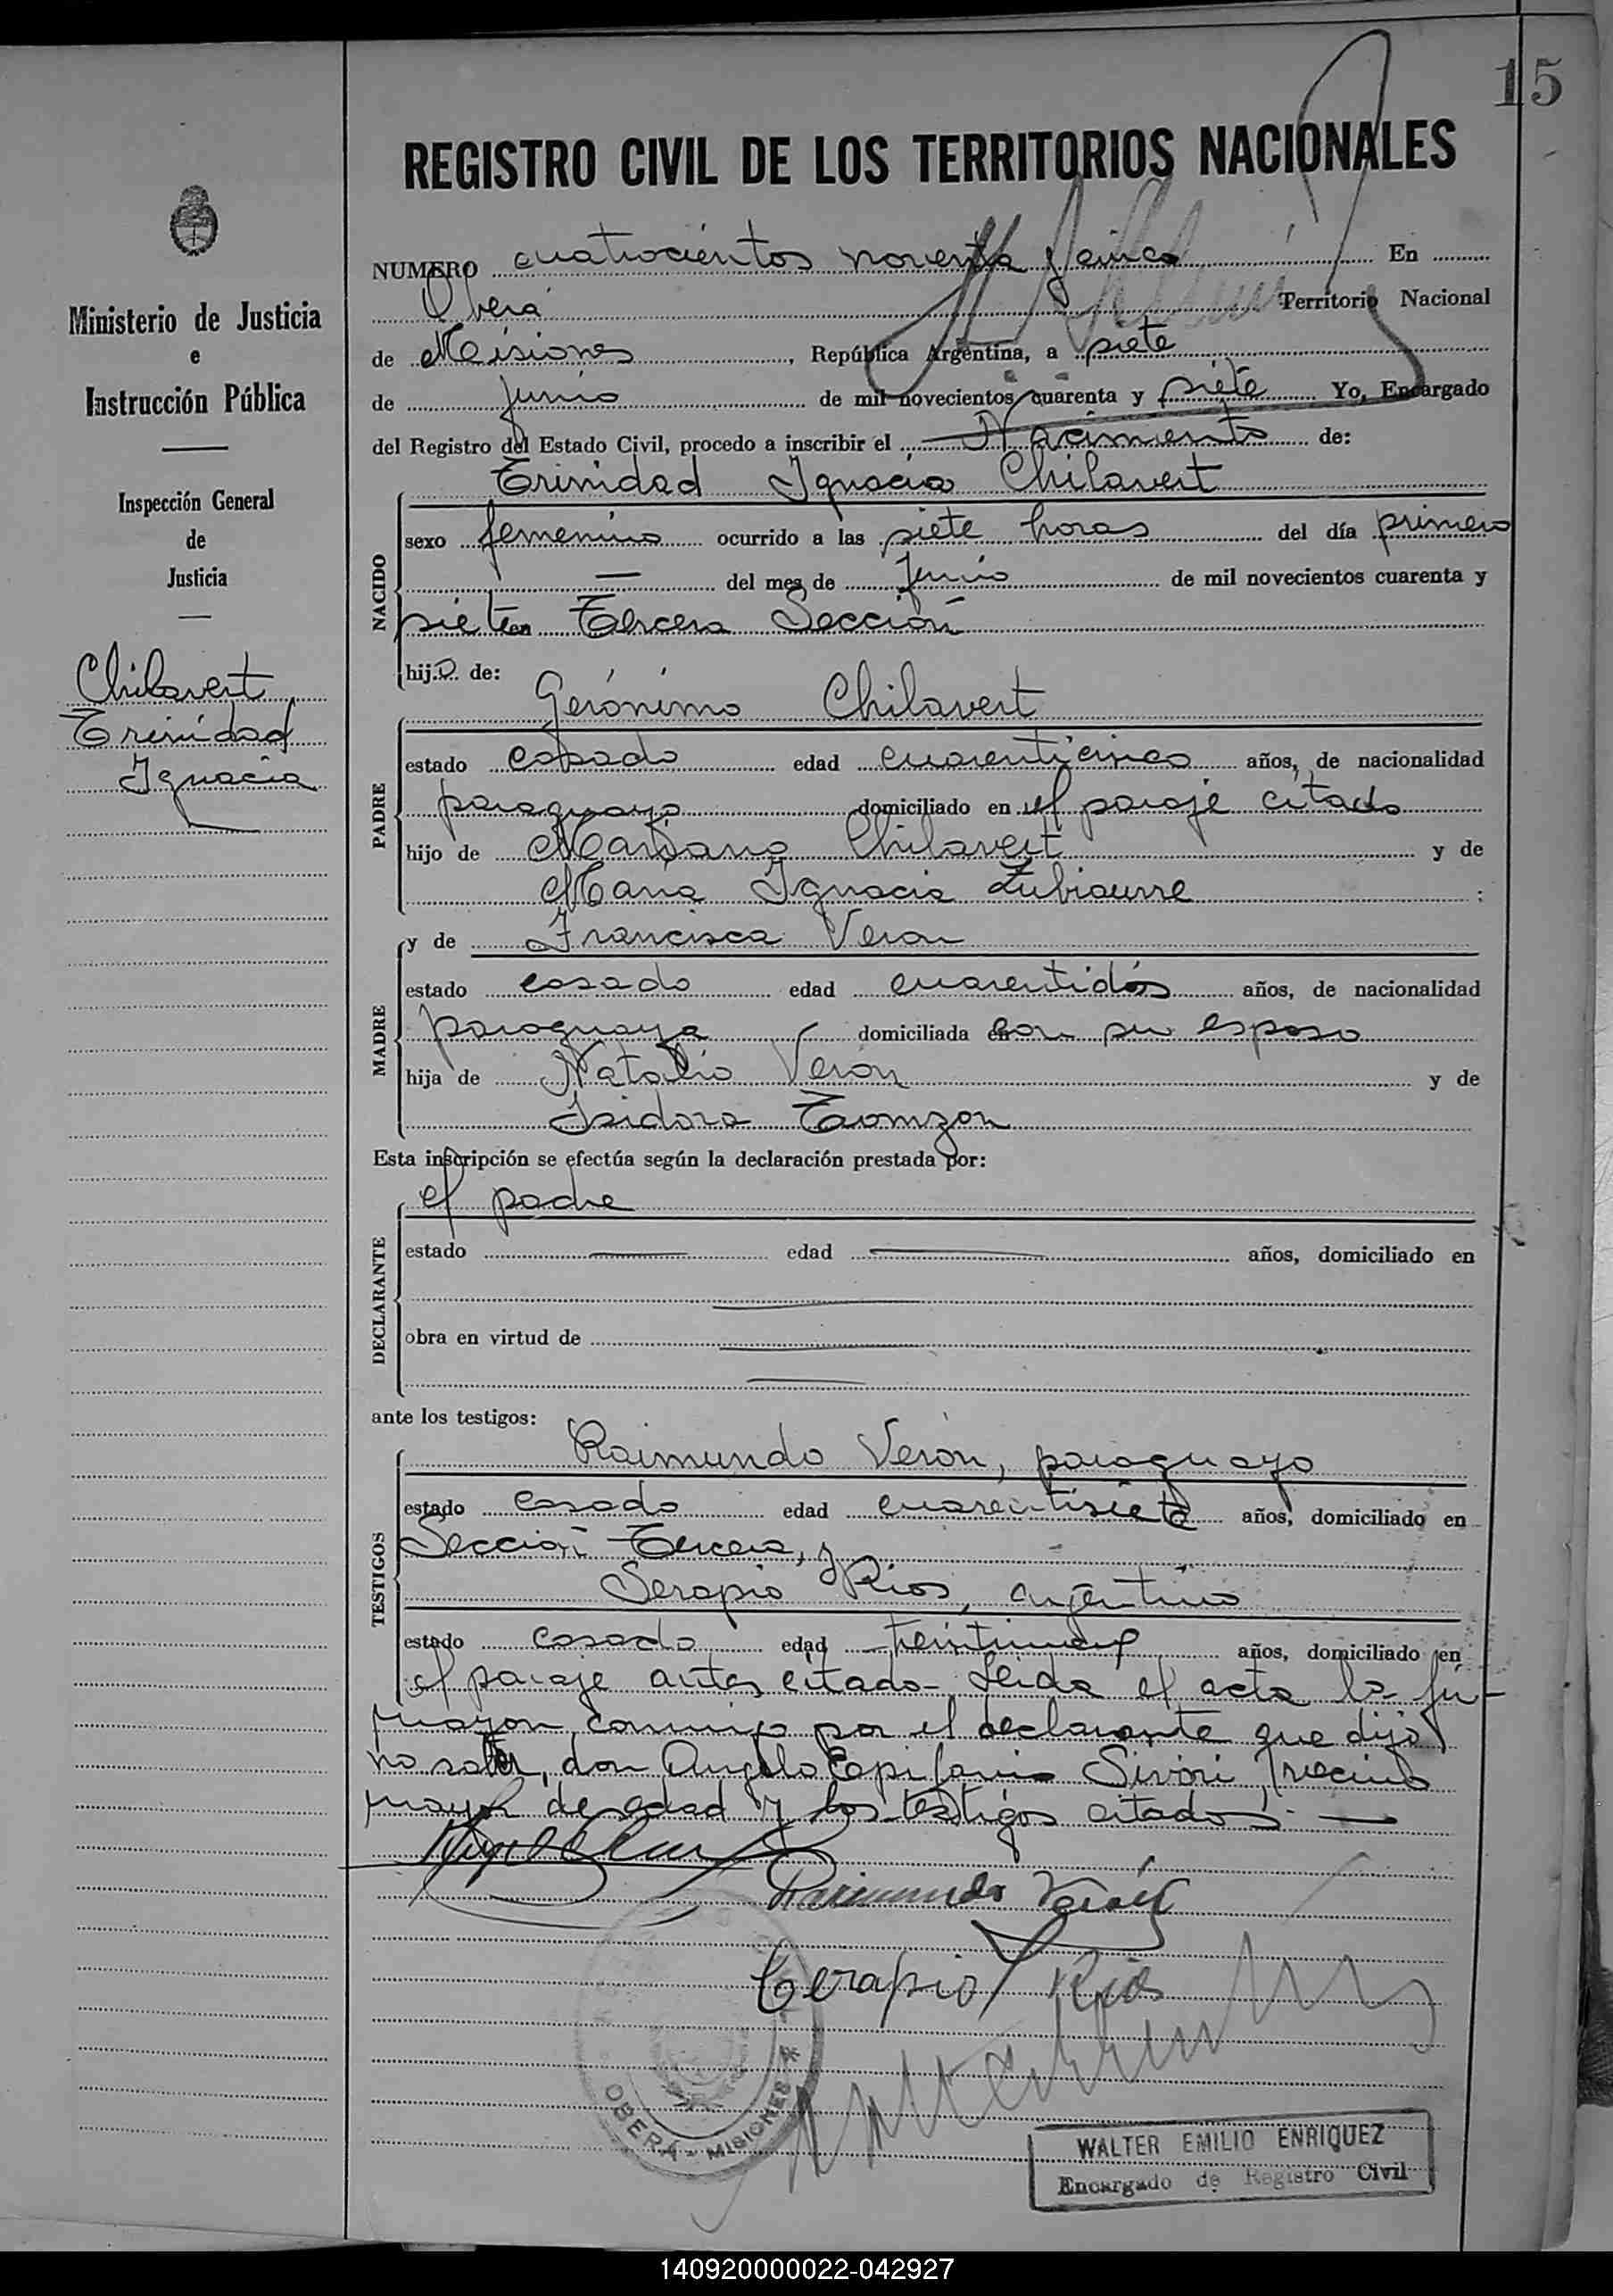 15
REGISTRO CIVIL DE LOS TERRITORIOS NACIONALES
Ministerio de Justicia
e
Instrucción Pública
Inspección General
de
Justicia
Chilavert
Trinidad
Ignacia
NUMERO cuatrocientos noventa y cinco En
Oberá Territorio Nacional
de Misiones, República Argentina, a siete
de junio de mil novecientos cuarenta y siete Yo, Encargado
del Registro del Estado Civil, procedo a inscribir el Nacimiento de:
Trinidad Ignacia Chilavert
NACIDO
sexo femenino ocurrido a las siete horas del día primero
— del mes de Junio de mil novecientos cuarenta y
siete en Tercera Sección
hija de:
Gerónimo Chilavert
PADRE
estado casado edad cuarenticinco años, de nacionalidad
paraguaya domiciliado en el paraje citado
hijo de Mariano Chilavert y de
María Ignacia Zubiaurre :
y de Francisca Veron
MADRE
estado casado edad cuarentidós años, de nacionalidad
paraguaya domiciliada en con su esposo
hija de Natalio Verón y de
Isidora
Esta inscripción se efectúa según la declaración prestada por:
el padre
DECLARANTE
estado — edad — años, domiciliado en
—
obra en virtud de —
—
ante los testigos:
Raimundo Verón, paraguayo
TESTIGOS
estado casado edad cuarentisiete años, domiciliado en
Sección Tercera, y
Serapio Rios, argentino
estado casado edad años, domiciliado en
el paraje antes citado - Leida el acta la fir-
maron conmigo por el declarante que dijo
no saber, don Angelo Epifanio Sivori, vecino
mayor de edad y los testigos citados. —
Raimundo Verón
Cerapio Rios
OBERA - MISIONES
WALTER EMILIO ENRIQUEZ
Encargado de Registro Civil
140920000022-042927